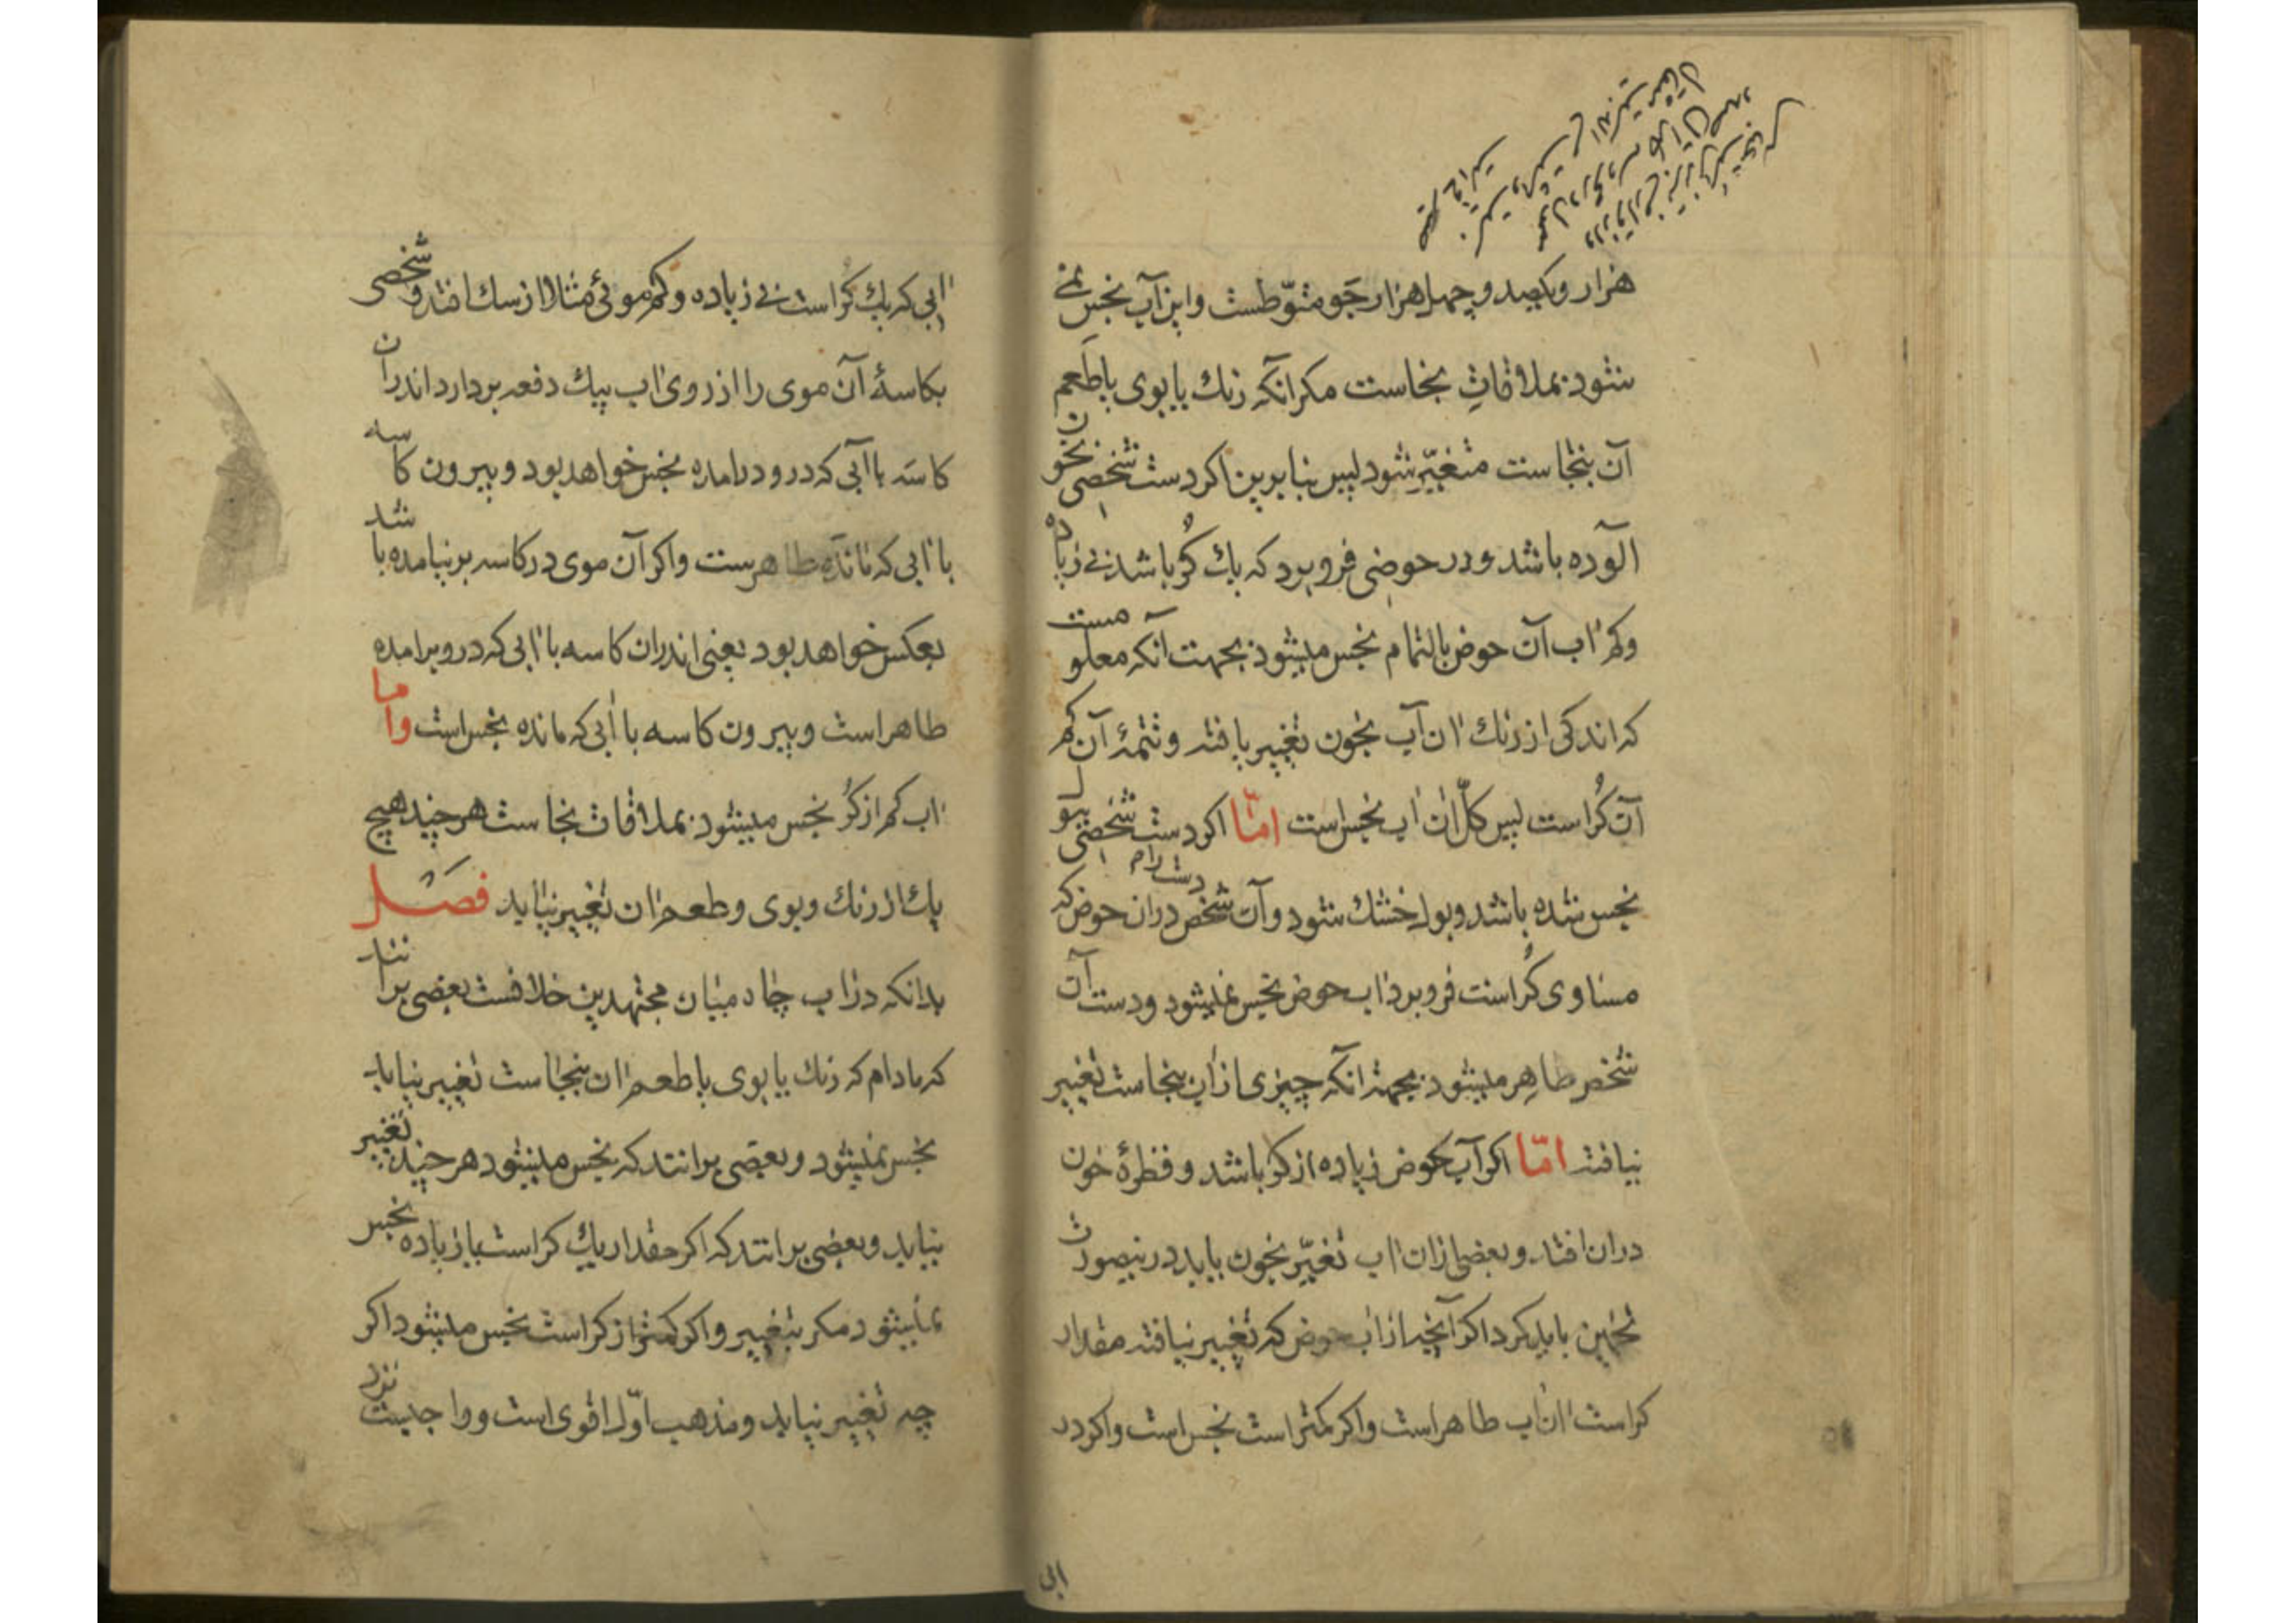 هزار ویکصد وچهل هزار جَو متوّطست واین آب نجس نمی
شود بملاقاتِ نجاست مکر آنکه رنك یا بوی یا طَعم
آن بنجاست متغیّر شود پس بنابرین اکر دست شخصی بخون
آلوده باشد ودر حوضی فرو برد که یك کُر باشد نی زیاده
وکم اب آن حوض بالتمام نجس میشود بجهت آنکه معلومست
که اندکی از رنك ان آب بخون تغییر یافته وتتمۀ آن کم
آن کُر است پس کلّ ان اب نجس است امّا اکر دست شخصی ببول
نجس شده باشد وبول خشك شود وآن شخص دران حوض که
دست را
مساوی کُر است فرو برد اب حوض نجس نمیشود ودست آن
شخص طاهر میشود بجهة انکه چیزی از اب بنجاست تغییر
نیافته امّا اکر آب حوض زیاده از کر باشد و قطرۀ خون
دران افتد وبعضی ازان اب تغیّر بخون یابد درینصورت
تخمین باید کرد اکر آنچه از اب حوض که تغییر نیافته مقدار
کر است ان اب طاهر است واکر کمتر است نجس است واکر در
ابی
ابی که یك کُر است نی زیاده وکم موئی مثلا از سك افتد وشخصی
بکاسۀ آن موی را از روی اب بیك دفعه بردارد اندران
کاسه با ابی که درو درامده نجس خواهد بود وبیرون کاسه
با ابی که مانده طاهرست واکر آن موی در کاسه برنیامده باشد
بعکس خواهد بود یعنی اندران کاسه با ابی که درو برامده
طاهر است وبیرون کاسه با ابی که مانده نجس است واما
اب کم از کُر نجس میشود بملاقات نجاست هر چند هیچ
یك از رنك وبوی وطعم ان تغییر نیابد فصَل
بدانکه در اب چاه میان مجتهدین خلافست بعضی برانند
که مادام که رنك یا بوی یا طعم ان بنجاست تغییر نیابد
نجس نمیشود وبعضی برانند که نجس میشود هر چند تغییر
نیابد وبعضی برانند که اکر مقدار یك کر است یا زیاده نجس
نمیشود مکر بتغییر واکر کمتر از کر است نجس میشود اکر
چه تغییر نیابد ومذهب اوّل اقوی است وواجبست نزد